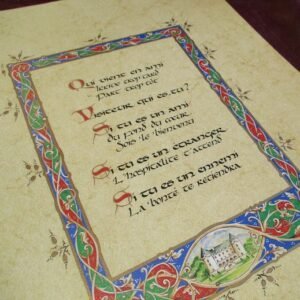 Qui vient en ami
Arrive trop tard
Part trop tôt
Visiteur, qui es.tu?
Si tu es un ami
du fond du cœur
Sois le bienvenu
Si tu es un étranger
L'hospitalité t'attend
Si tu es un ennemi
La bonté te retiendra